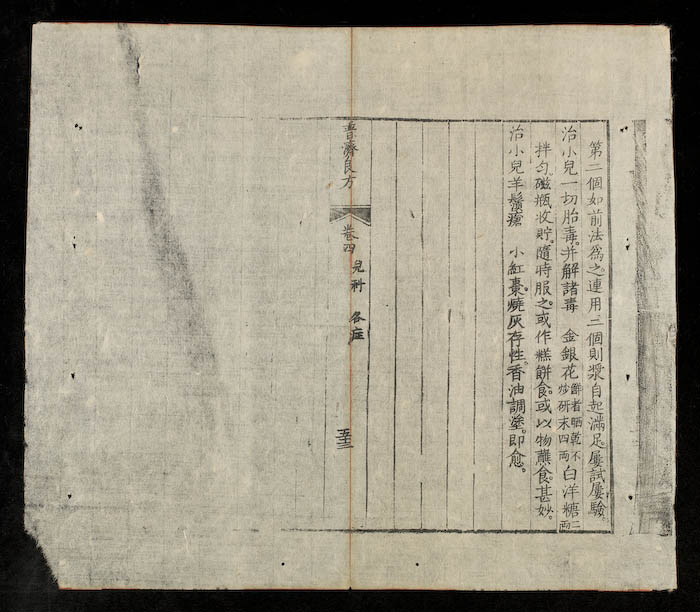 第二個如前法爲之。連用三個則漿自起滿足屢試屢驗。
治小兒一切胎毒。并解諸毒　金銀花鮮者晒乾不炒研末四兩白洋糖二兩
拌勻。磁瓶收貯。隨時服之。或作糕餅食。或以物蘸食。甚妙。
治小兒羊鬚瘡　小紅棗燒灰存性。香油調塗。即愈。
普濟良方
卷四　兒科　各症
五十三